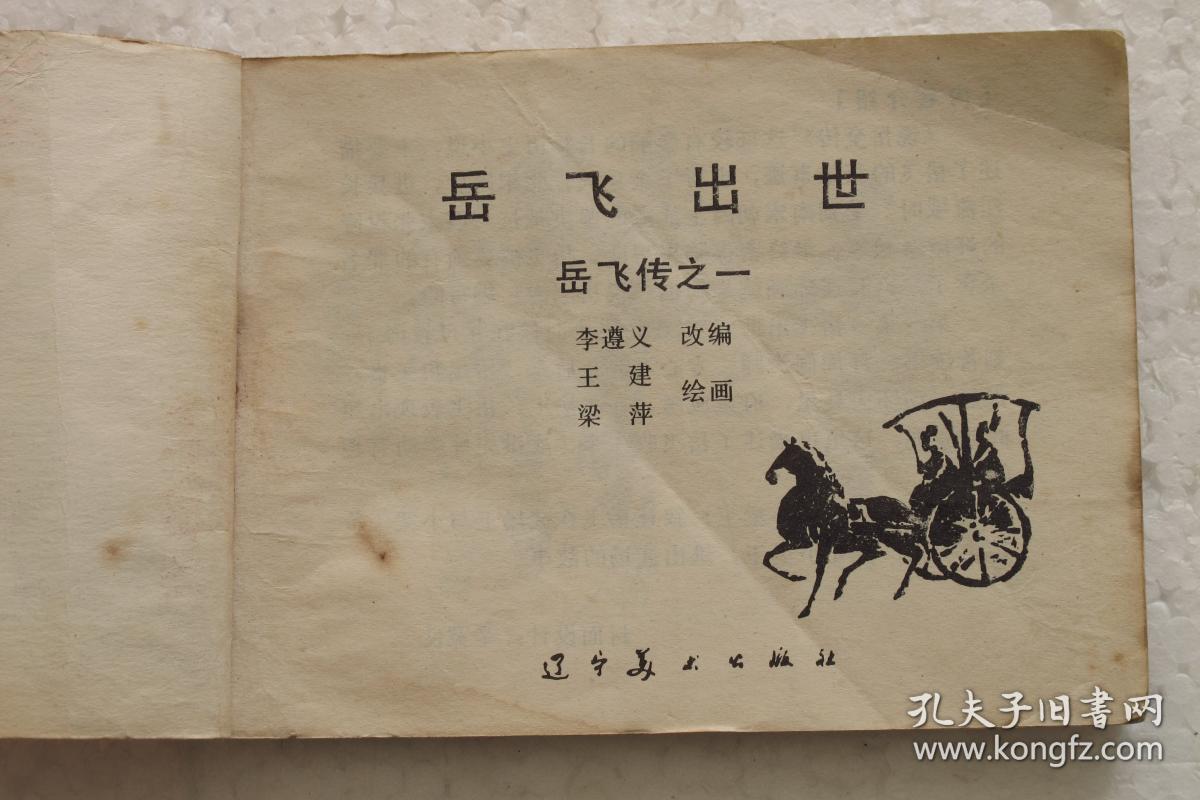 岳飞出世
岳飞传之一
李遵义 改编
王建
梁萍 绘画
辽宁美术出版社
孔夫子旧書网
www.kongfz.com